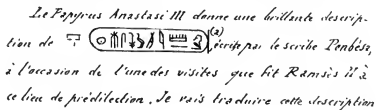 Le Papyrus Anastasi III donne une brillante descrip-
tion de (a) écrite par le scribe Penbésa,
à l'occasion de l'une des visites que fit Ramsès II à
ce lieu de prédilection. Je vais traduire cette description